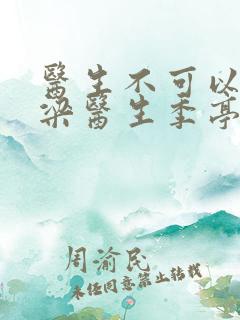 醫生不可以
梁醫生季亭
周渝民
未经同意禁止转载